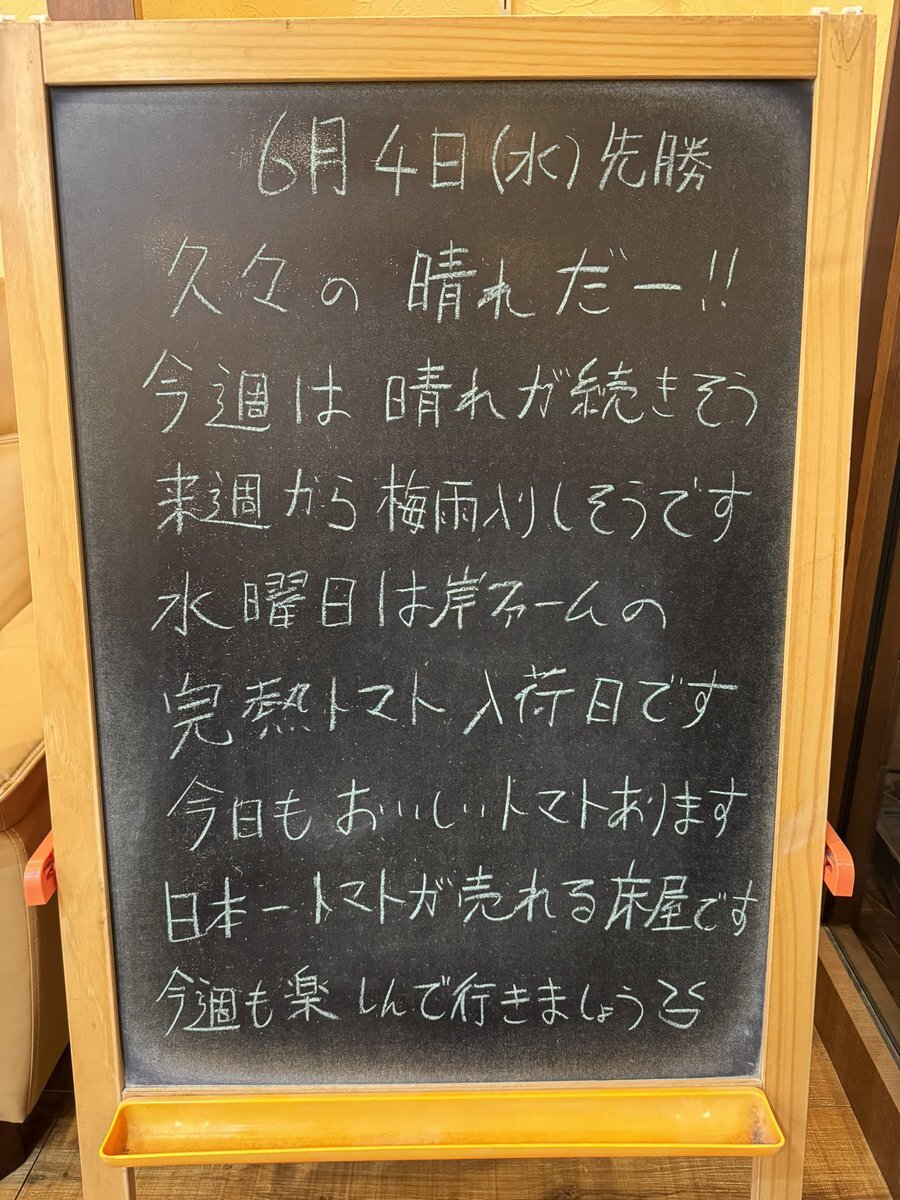 6月4日(水)先勝
久々の晴れだー!!
今週は晴れが続きそう
来週から梅雨入りしそうです
水曜日は岸ファームの
完熟トマト入荷日です
今日もおいしいトマトあります
日本一トマトが売れる床屋です
今週も楽しんで行きましょう